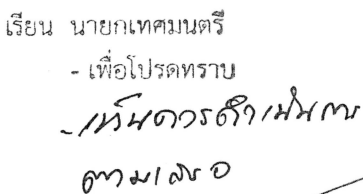 เรียน นายกเทศมนตรี
- เพื่อโปรดทราบ
- เห็นควรดำเนินการ
ตามเสนอ